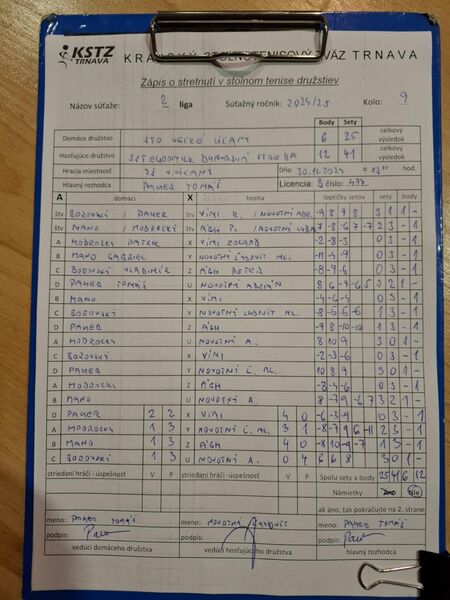 KSTZ
TRNAVA
KRAJSKÝ STOLNOTENISOVÝ ZVÄZ TRNAVA
Zápis o stretnutí v stolnom tenise družstiev
Názov súťaže: 2 liga Súťažný ročník: 2024/25 Kolo: 9
Body Sety
Domáce družstvo STO VEĽKÉ ÚĽANY 6 25 celkový výsledok
Hosťujúce družstvo DUNAJSKÁ STREDA 12 41 celkový výsledok
Hracia miestnosť ZŠ V. ÚĽANY Dňa: 30.11.2024
Hlavný rozhodca PAVER TOMÁŠ Licencia: číslo:
A domáci X hostia loptičky setov sety body
štv BOROVSKÝ PAVER štv VIMI R. / NOVOTNÝ -9 8 9 8 3 1 1 -
štv MANO / MODROCKÝ štv ÁGH P. / NOVOTNÝ 7 -8 -6 7 -7 2 3 - 1
A MODROCKÝ PATRIK X VIMI ROLAND -2 -8 -3 0 3 - 1
B MANO GABRIEL Y NOVOTNÝ ĽUDOVÍT ML. -11 -4 -9 0 3 - 1
C BOROVSKÝ VLADIMÍR Z ÁGH PETER -8 -9 -6 0 3 - 1
D PAVER TOMÁŠ U NOVOTNÝ ADRIÁN
B MANO X VIMI -4 -6 -5 0 3 - 1
C BOROVSKÝ Y NOVOTNÝ ĽUDOVÍT ML.
D PAVER Z ÁGH -9 8 -10 -10 1 3 - 1
A MODROCKÝ U NOVOTNÝ A. 8 10 9 3 0 1 -
C BOROVSKÝ X VIMI -2 -3 -6 0 3 - 1
D PAVER Y NOVOTNÝ Ľ. ML. 10 8 9 3 0 1 -
A MODROCKÝ Z ÁGH -8 -4 -6 0 3 - 1
B MANO U NOVOTNÝ A. 8 -7 9 -6 7 3 2 1 -
D PAVER 2 2 X VIMI 4 0 -6 -3 -9 0 3 - 1
A MODROCKÝ 1 3 Y NOVOTNÝ Ľ. ML. 3 1 -8 -7 9 6 -11 2 3 - 1
B MANO 1 3 Z ÁGH 4 0 -8 10 -9 -7 1 3 - 1
C BOROVSKÝ 1 3 U NOVOTNÝ A. 0 4 6 6 8 3 0 1 -
striedaní hráči - úspešnosť V P striedaní hráči - úspešnosť V P Spolu sety a body 25 41 6 12
Námietky áno nie
ak áno, tak pokračujte na 2. strane
meno: PAVER TOMÁŠ meno: NOVOTNÝ ĽUDOVÍT meno: PAVER TOMÁŠ
podpis: podpis: podpis:
vedúci domáceho družstva vedúci hosťujúceho družstva hlavný rozhodca